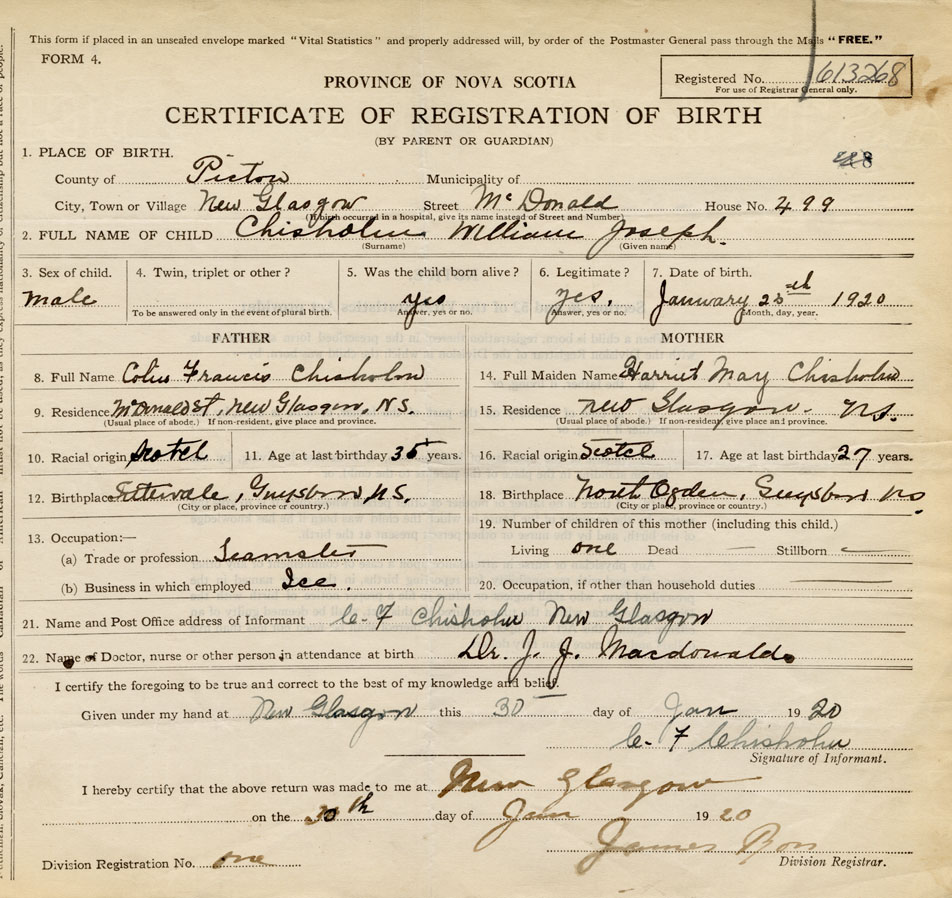 This form if placed in an unsealed envelope marked "Vital Statistics" and properly addressed will, by order of the Postmaster General pass through the Mails "FREE."
FORM 4.
Registered No. 613268
For use of Registrar General only.
PROVINCE OF NOVA SCOTIA
CERTIFICATE OF REGISTRATION OF BIRTH
(BY PARENT OR GUARDIAN)
1. PLACE OF BIRTH.
County of Pictou Municipality of
City, Town or Village New Glasgow Street McDonald House No. 499
(If birth occurred in a hospital, give its name instead of Street and Number)
2. FULL NAME OF CHILD Chisholm William Joseph.
(Surname) (Given name)
3. Sex of child. 4. Twin, triplet or other? 5. Was the child born alive? 6. Legitimate? 7. Date of birth.
male yes yes. January 1920
To be answered only in the event of plural birth. Answer, yes or no. Answer, yes or no. Month, day, year.
FATHER MOTHER
8. Full Name Colin Francis Chisholm 14. Full Maiden Name Harriet May Chisholm
9. Residence McDonald St, New Glasgow, N.S. 15. Residence New Glasgow. N.S.
(Usual place of abode.) If non-resident, give place and province. (Usual place of abode.) If non-resident, give place and province.
10. Racial origin Scotch 11. Age at last birthday 35 years. 16. Racial origin Scotch 17. Age at last birthday 27 years.
12. Birthplace , Guysboro, N.S. 18. Birthplace North Ogden, Guysboro NS
(City or place, province or country.) (City or place, province or country.)
13. Occupation:— 19. Number of children of this mother (including this child.)
(a) Trade or profession Teamster Living one Dead — Stillborn —
(b) Business in which employed Ice. 20. Occupation, if other than household duties
21. Name and Post Office address of Informant C. F Chisholm New Glasgow
22. Name of Doctor, nurse or other person in attendance at birth Dr. J. J. Macdonald
I certify the foregoing to be true and correct to the best of my knowledge and belief.
Given under my hand at New Glasgow this 30 day of Jan 1920
C. F Chisholm
Signature of Informant.
I hereby certify that the above return was made to me at New Glasgow
on the 30th day of Jan 1920
James
Division Registration No. one Division Registrar.